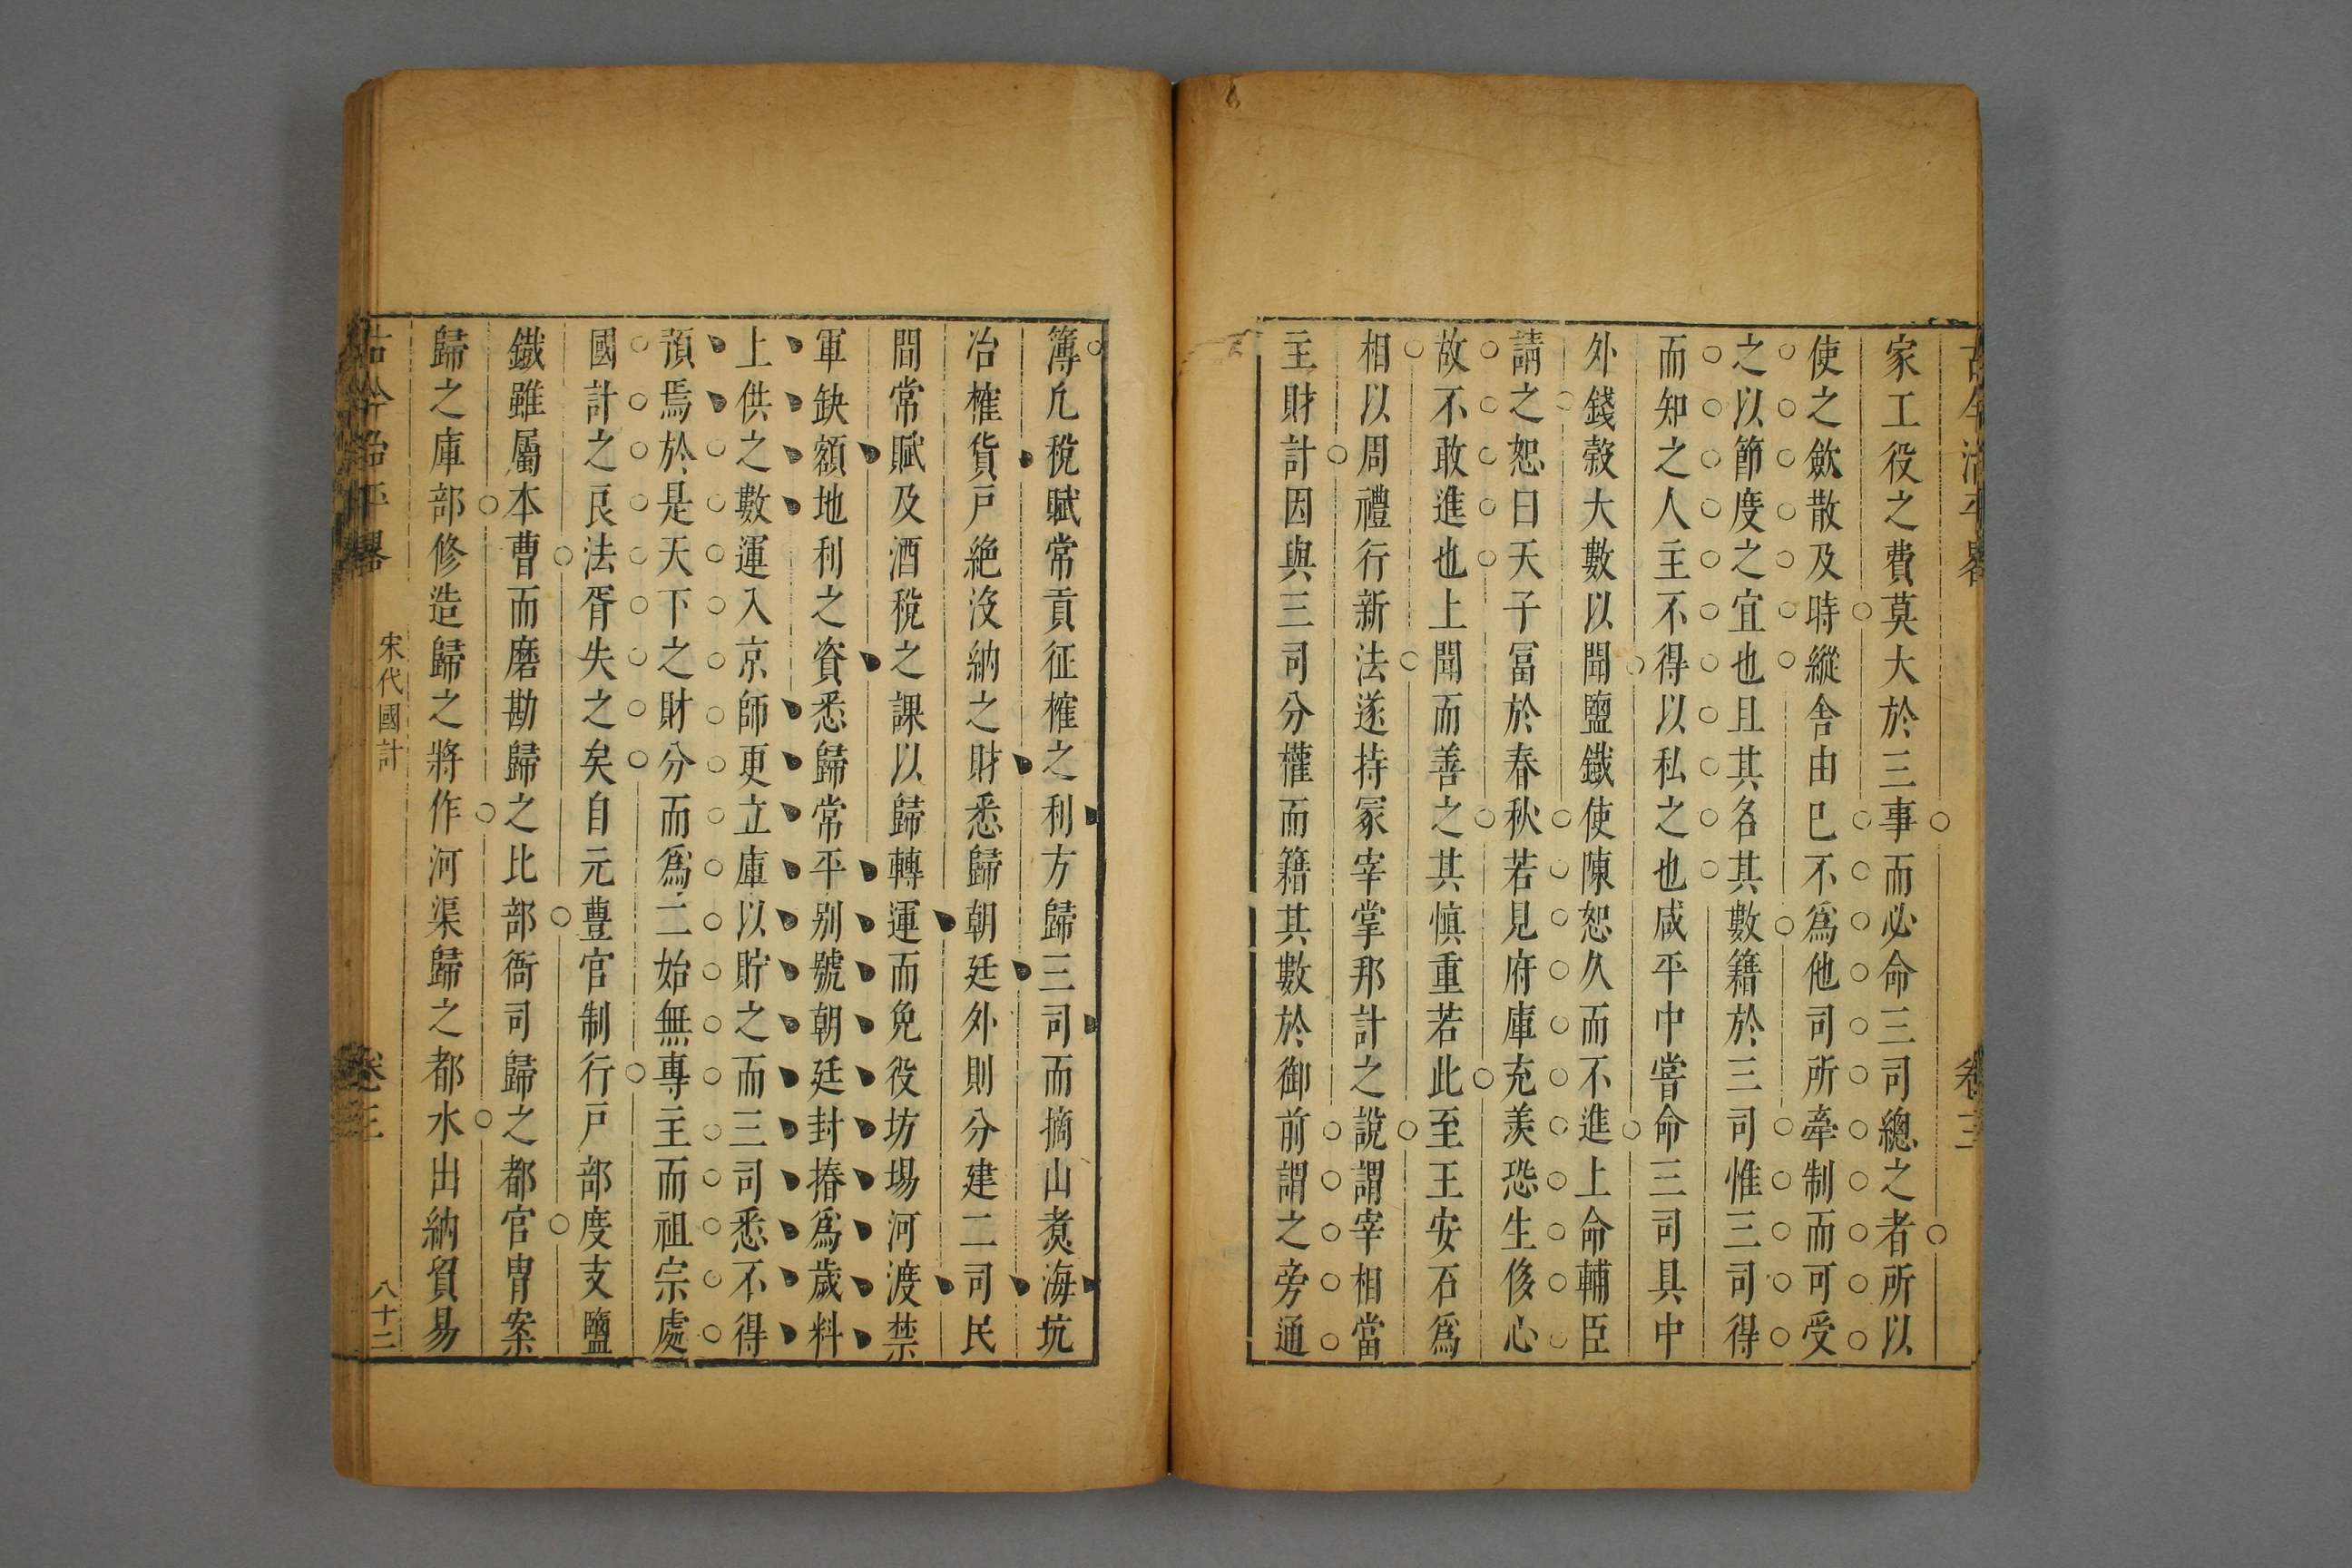 古今治平畧
卷三
家工役之費莫大於三事而必命三司總之者所以
使之斂散及時縱舍由巳不爲他司所牽制而可受
之以節度之宜也且其各其數籍於三司惟三司得
而知之人主不得以私之也咸平中嘗命三司具中
外錢榖大數以聞鹽鐵使陳恕久而不進上命輔臣
請之恕曰天子冨於春秋若見府庫充羡恐生侈心
故不敢進也上聞而善之其慎重若此至王安石爲
相以周禮行新法遂持冢宰掌邦計之說謂宰相當
主財計因與三司分權而籍其數於御前謂之旁通
簿凢稅賦常貢征榷之利方歸三司而摘山煑海坑
冶榷貨戸絶沒納之財悉歸朝廷外則分建二司民
間常賦及酒稅之課以歸轉運而免役坊場河渡禁
軍缺額地利之資悉歸常平别號朝廷封樁爲歲料
上供之數運入京師更立庫以貯之而三司悉不得
預焉於是天下之財分而爲二始無專主而祖宗處
國計之良法胥失之矣自元豐官制行戸部度支鹽
鐵雖屬本曹而磨勘歸之比部衙司歸之都官胄案
歸之庫部修造歸之將作河渠歸之都水出納貿易
古今治平畧
宋代國計
卷三
八十二